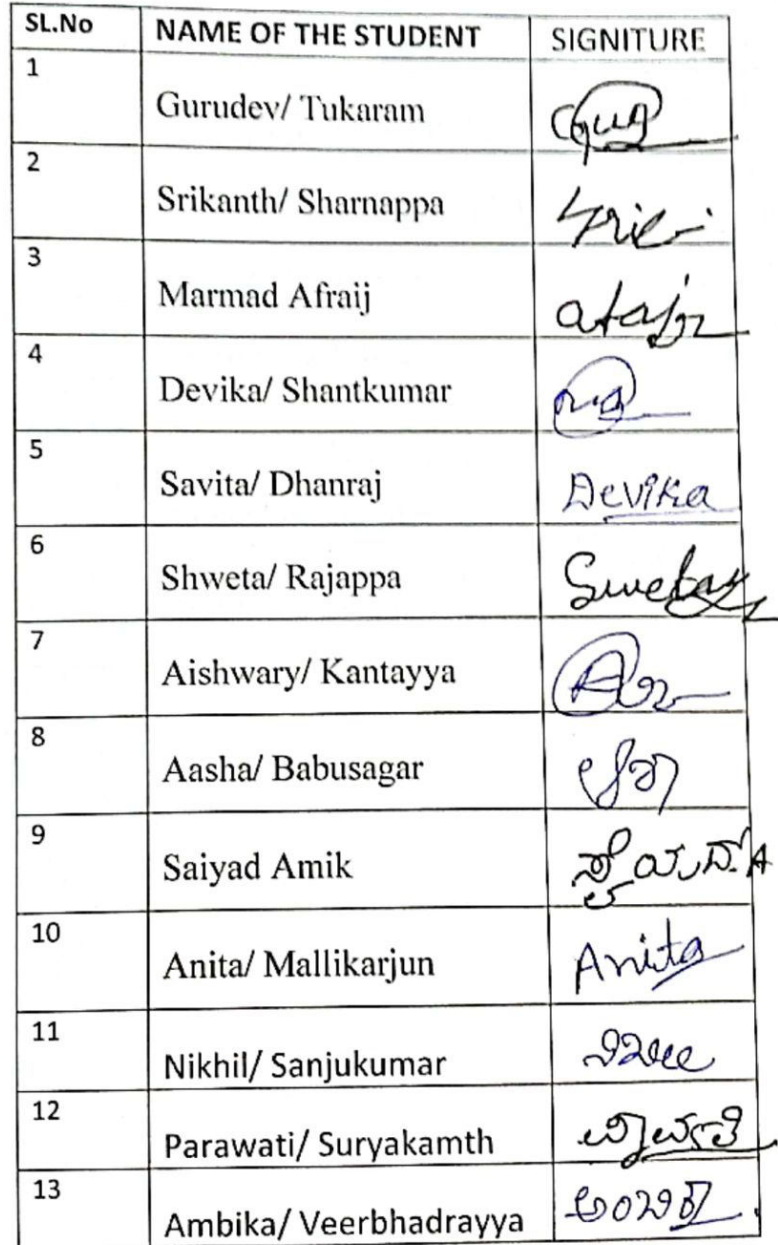 SL.No NAME OF THE STUDENT SIGNITURE
1 Gurudev/ Tukaram
2 Srikanth/ Sharnappa
3 Marmad Afraij
4 Devika/ Shantkumar
5 Savita/ Dhanraj Devika
6 Shweta/ Rajappa
7 Aishwary/ Kantayya
8 Aasha/ Babusagar
9 Saiyad Amik
10 Anita/ Mallikarjun Anita
11 Nikhil/ Sanjukumar
12 Parawati/ Suryakamth
13 Ambika/ Veerbhadrayya